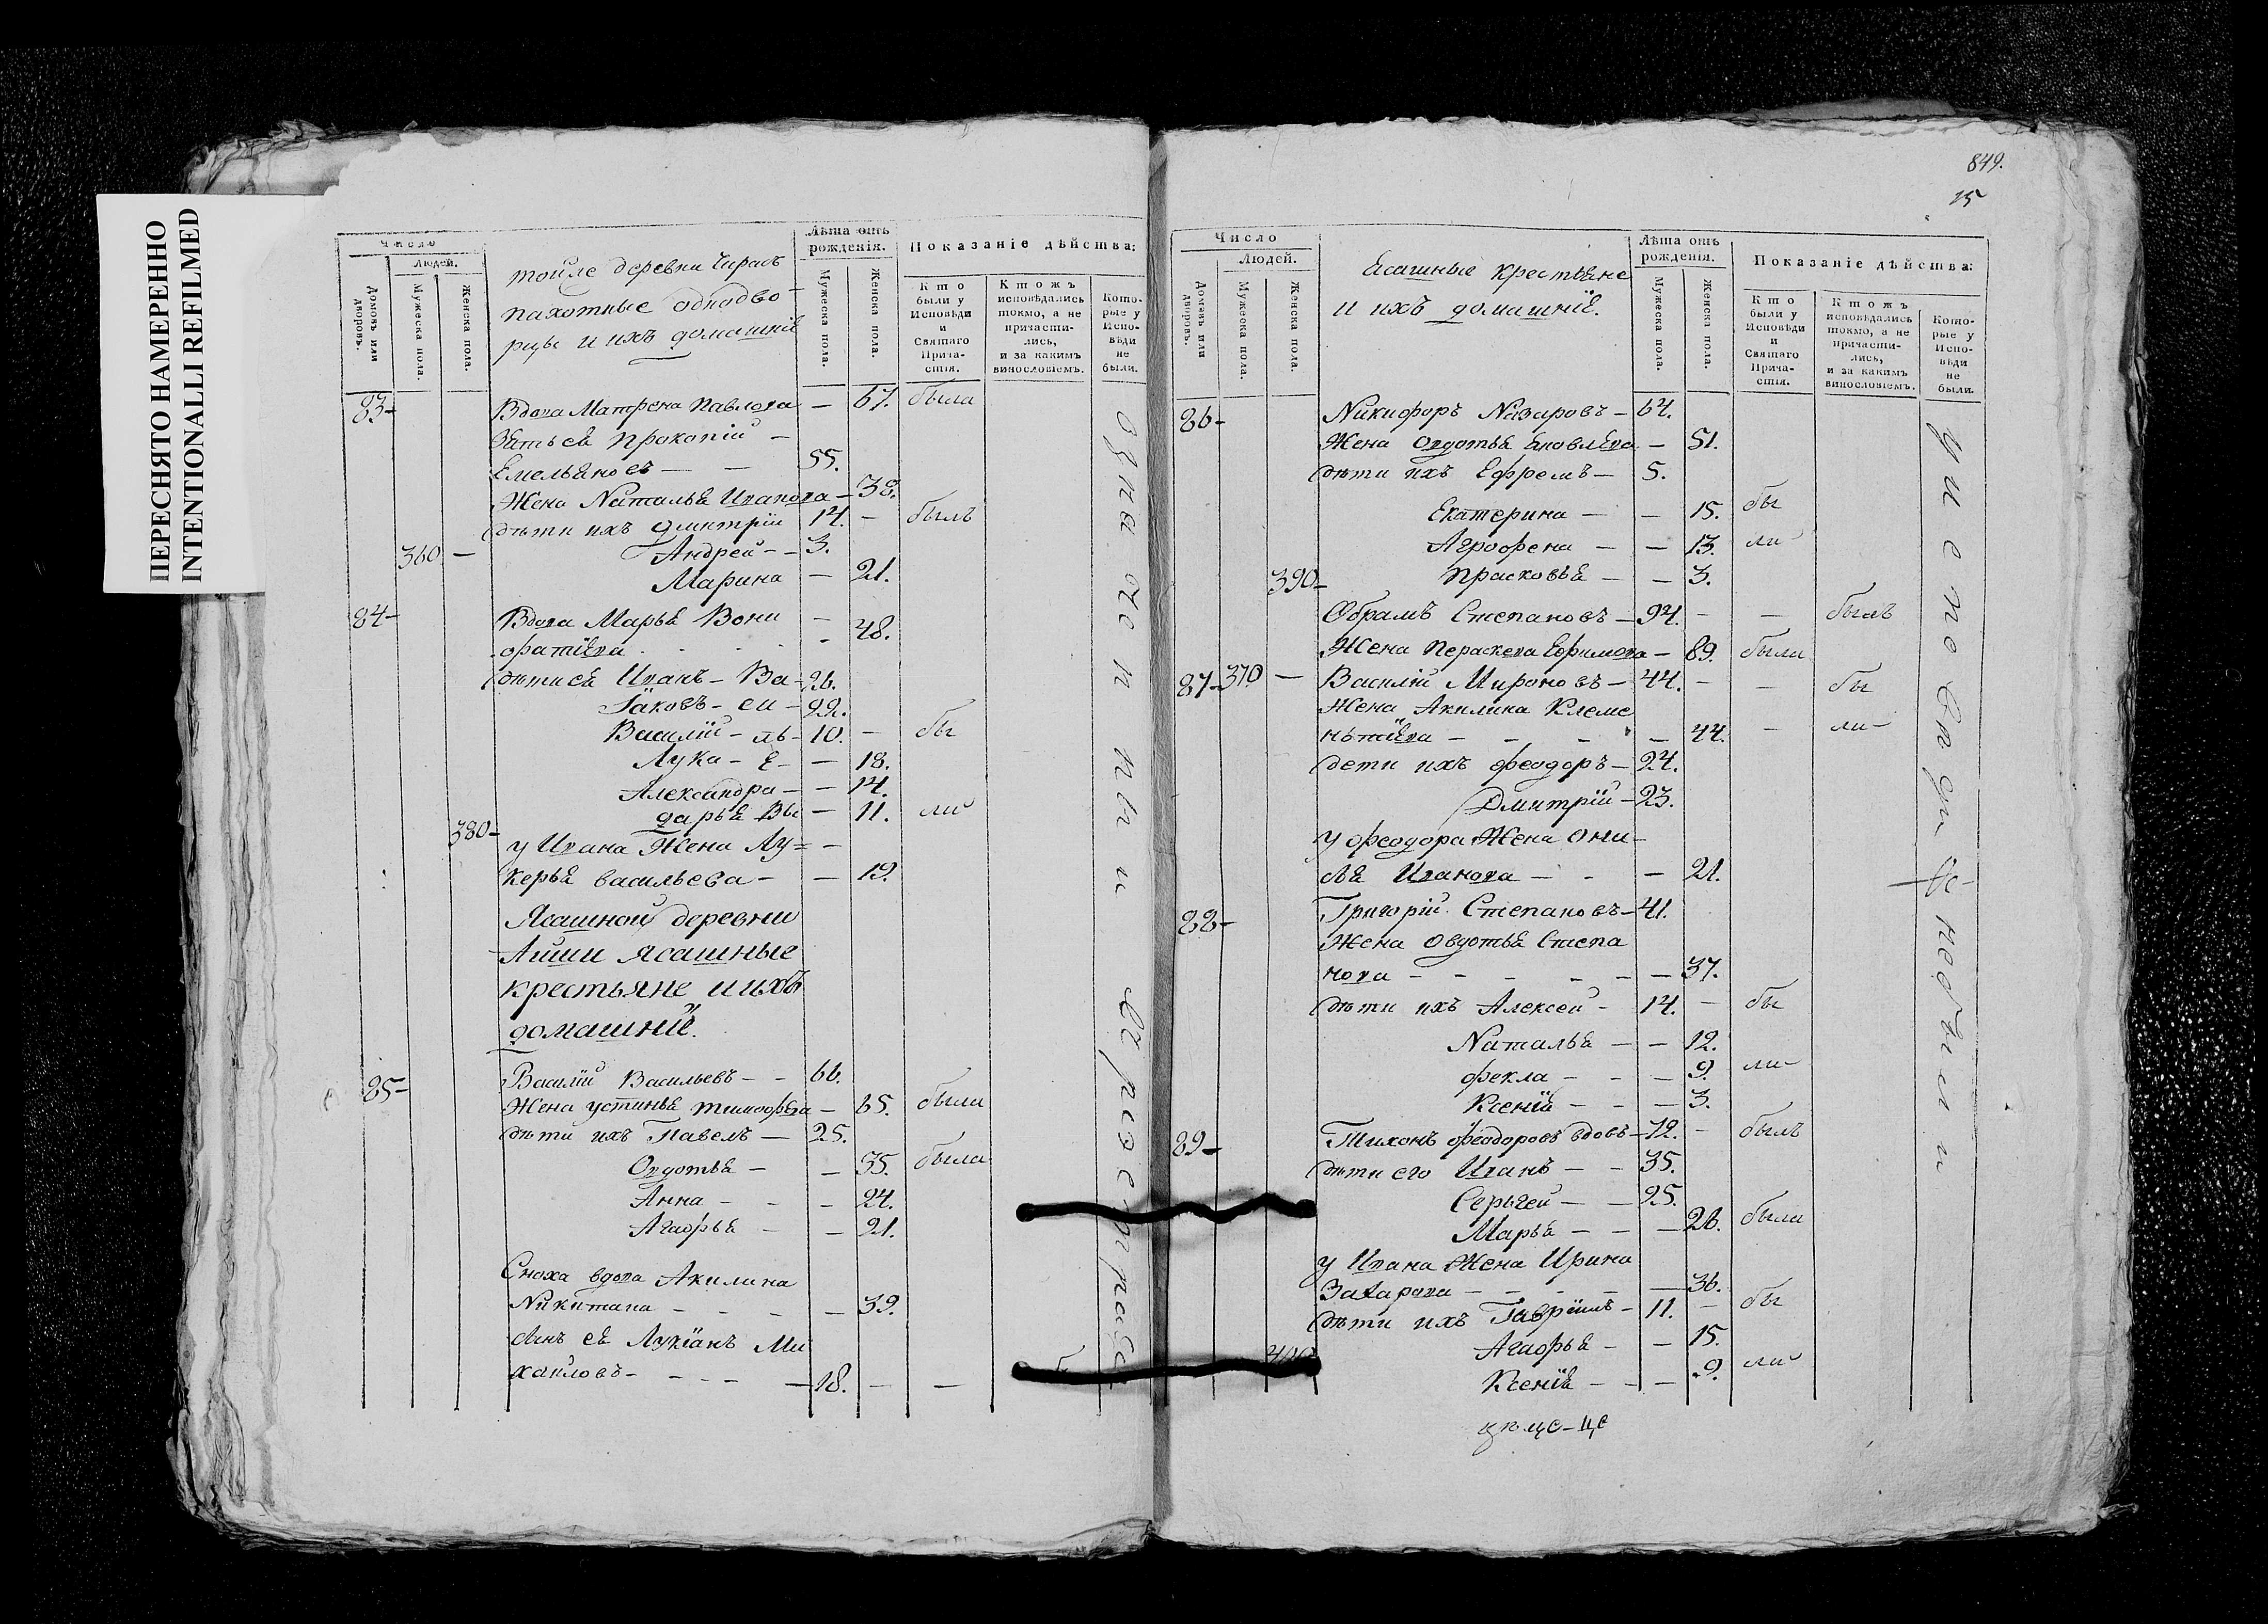 ПЕРЕСНЯТО НАМЕРЕННО
INTENTIONALLI REFILMED
Число
Людей.
Домовъ или дворовъ.
Мужеска пола.
Женска пола.
тойже деревни
пахотные однодво-
рцы и ихъ домашнïе
Лѣта отъ рожденïя.
Мужеска пола.
Женска пола.
Показанïе дѣйства:
Кто были у Исповѣди и Святаго Прича-стïя.
Ктожъ исповѣдались токмо, а не причасти-лись, и за какимъ винословïемъ.
Кото-рые у Испо-вѣди не были.
83- Вдова Матрена Павлова — 67. была
Зять ея Прокопïй —
Емельяновъ — — 55.
Жена Наталья Иванова — 38.
дѣти ихъ Дмитрïй 14. — былъ
360 — Андрей — 3.
Марина — 21.
84- Вдова Марья Вони —
фатïева - 48.
дѣти ея Иванъ - Ва - 26.
Iаковъ - си - 22.
Василïй - ль - 10. — бы
Лука - е - — 18.
Александра - - 14.
Дарья Вы — 11. ли
380-
у Ивана Жена Лу= —
керья васильева — — 19.
Ясашной деревни
Аиши ясашные
крестьяне и ихъ
домашнïе.
85- Василïй Васильевъ - - 66.
Жена Устинья тимофѣева — 65. были
дѣти ихъ Павелъ — 25.
Овдотья - — 35. была
Анна - - - 24.
Агафья - - 21.
Сноха вдова Акилина
Никитина - - - - 39.
сынъ ея Лукïанъ Ми
хаиловъ - - - - 18. — —
849.
15
Число
Людей.
Домовъ или дворовъ.
Мужеска пола.
Женска пола.
Ясашные крестьяне
и ихъ домашнïе.
Лѣта отъ рожденïя.
Мужеска пола.
Женска пола.
Показанïе дѣйства:
Кто были у Исповѣди и Святаго Прича-стïя.
Ктожъ исповѣдались токмо, а не причасти-лись, и за какимъ винословïемъ.
Кото-рые у Испо-вѣди не были.
86- Никифоръ Назаровъ - 64.
Жена Овдотья Яковлева — 51.
дѣти ихъ Ефремъ — 5.
Екатерина — — 15. бы
Агрофена — — 13. ли
390- Прасковья — — 3.
Обрамъ Степановъ - 94. — — былъ
Жена Пераскева Ефимова — 89. были
87- 370 — Василïй Мироновъ - 44. — — бы
Жена Акилина Клеме
нтïева — — — — 44. — ли
дети ихъ Феодоръ - 24.
Дмитрïй - 23.
у Феодора Жена Они-
сья Иванова — - — 21.
88- Григорïй Степановъ - 41.
Жена Овдотья Степа
нова - - - - - — 37.
дѣти ихъ Алексей - 14. — бы
Наталья - - 12.
Фекла - - - 9. ли
Ксенïя - - - 3.
89- Тихонъ Феодоровъ вдовъ - 72. — былъ
дѣти его Иванъ - - 35.
Серьгей - - 25.
Марья - - - 26. были
у Ивана Жена Ирина
Захарова - - - - 36.
дѣти ихъ Гаврïилъ - 11. — бы
Агафья - - 15.
Ксенïя - - - 9. ли
у исповѣди не были